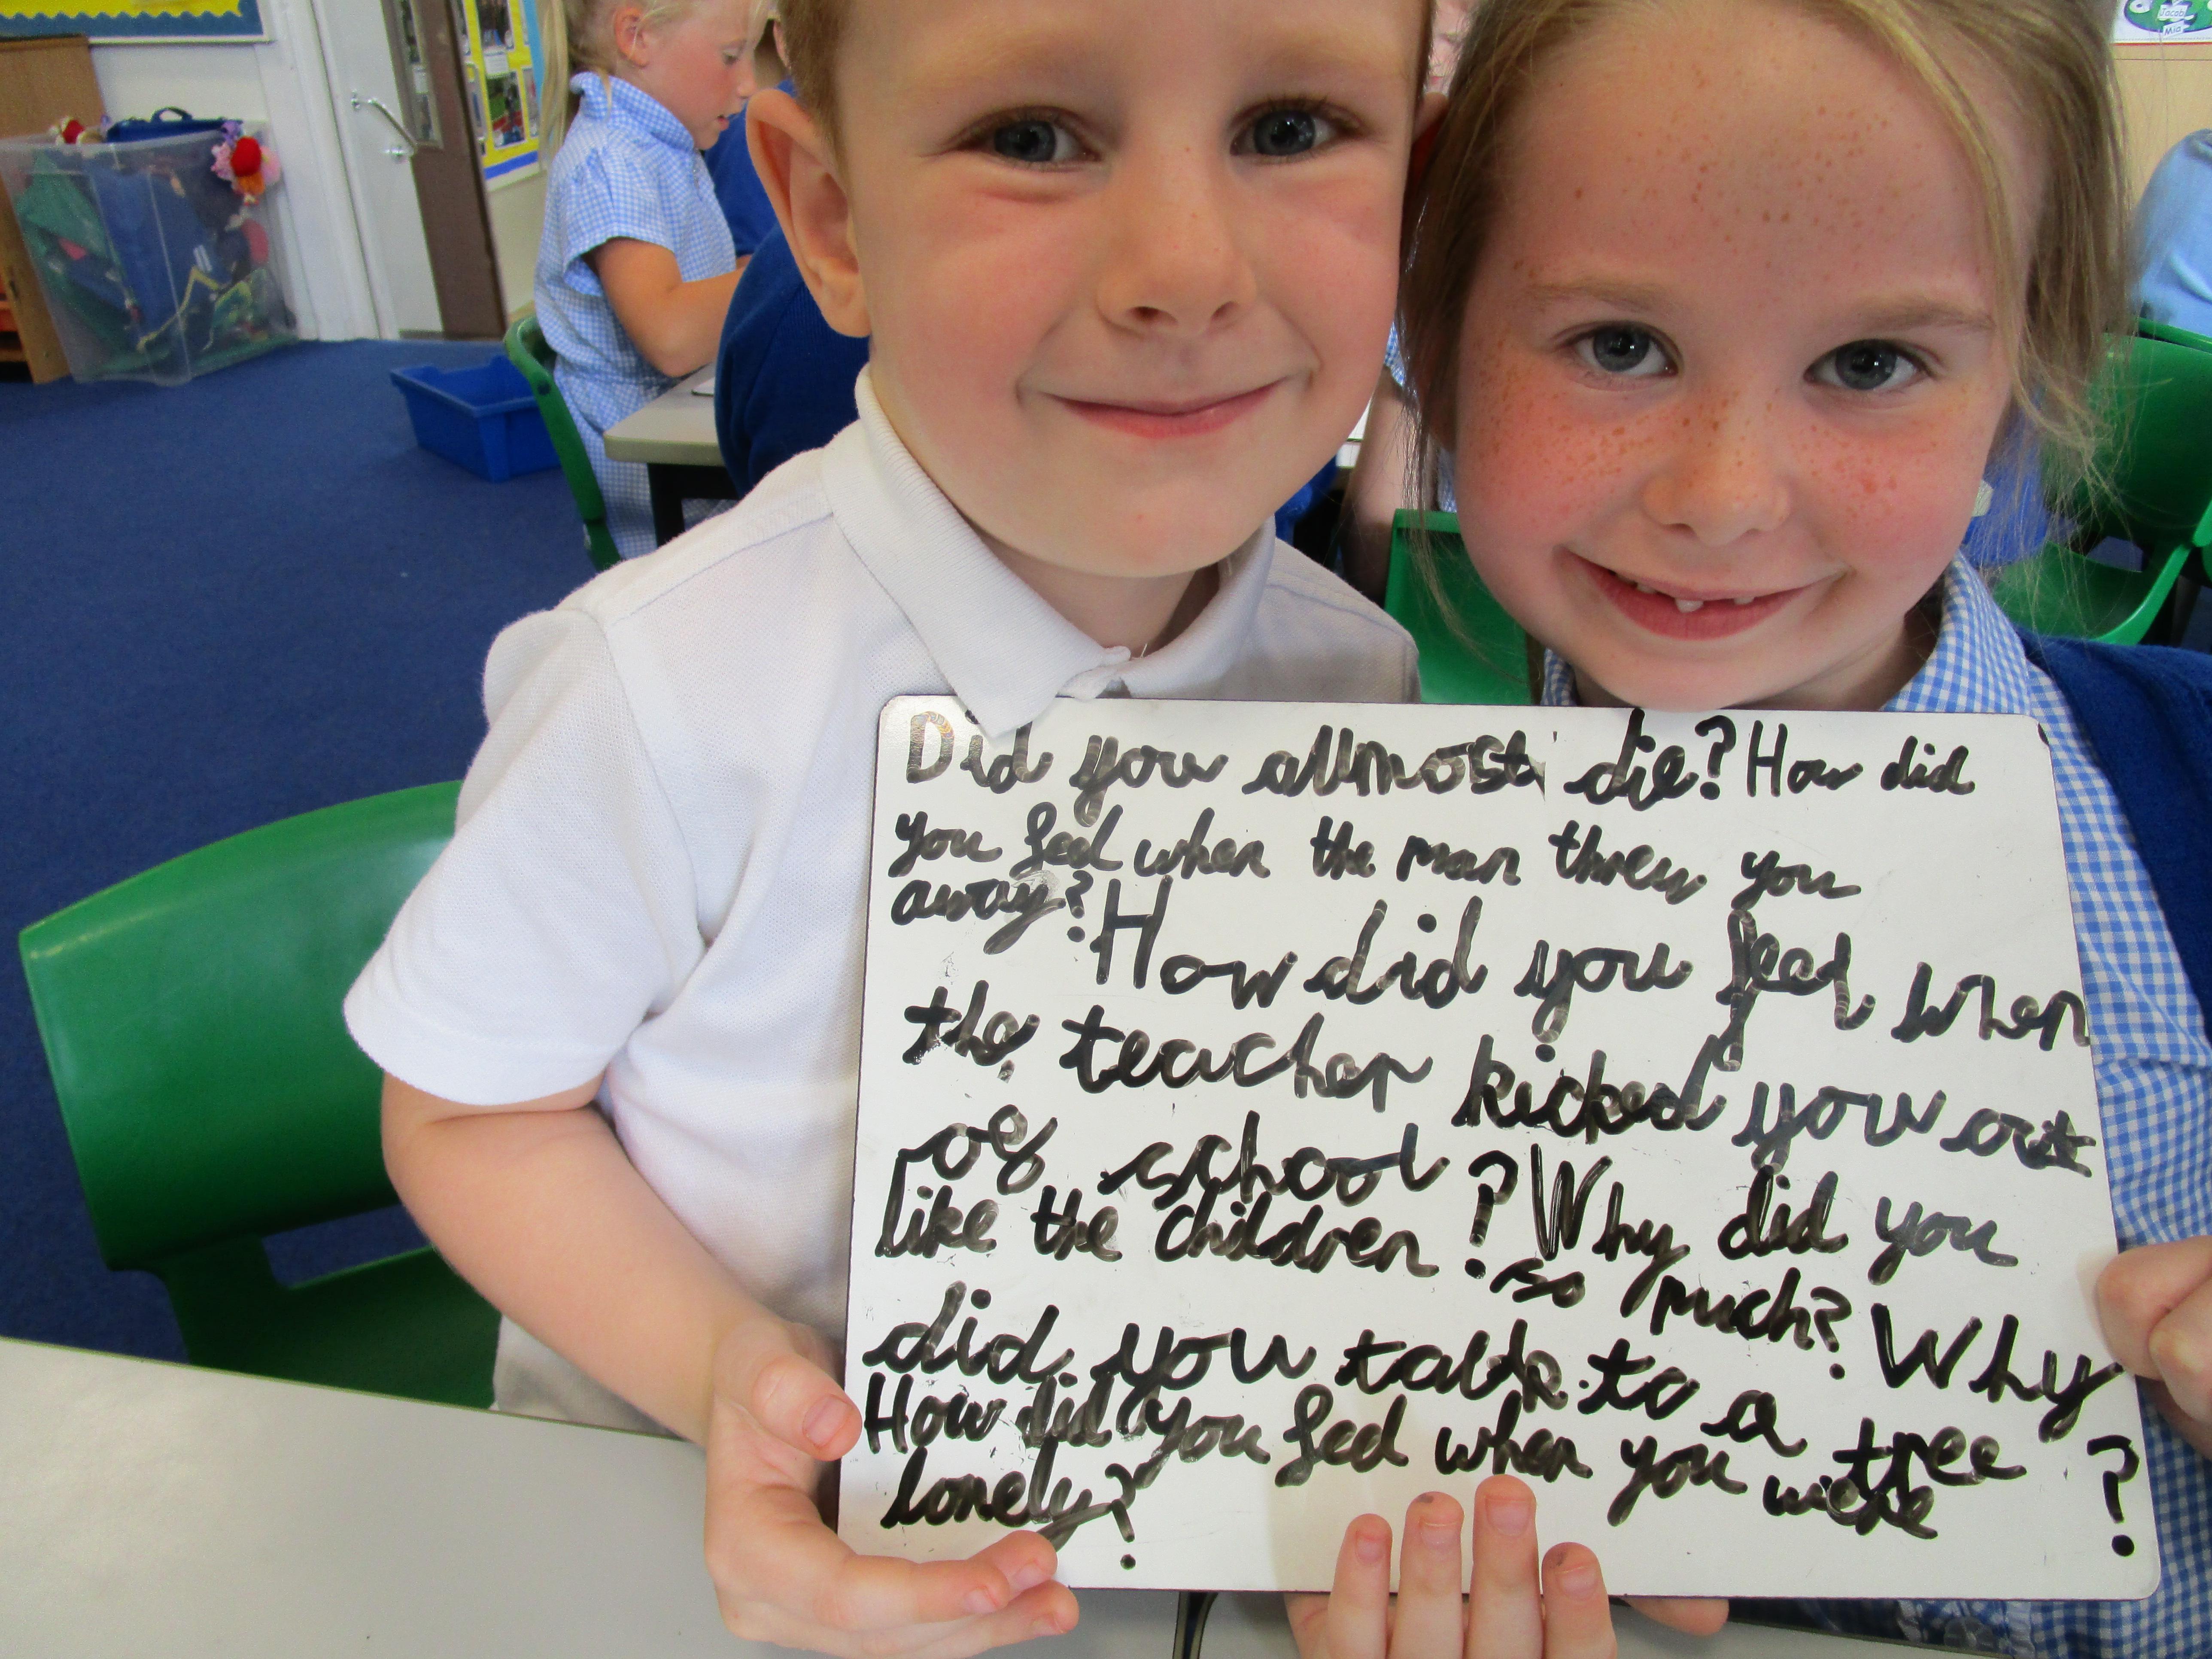 Did you allmost die? How did
you feel when the man threw you
away? How did you feel when
the teacher kicked you out
of school? Why did you
like the children so much? Why
did you talk to a tree?
How did you feel when you were
lonely?
Jacob